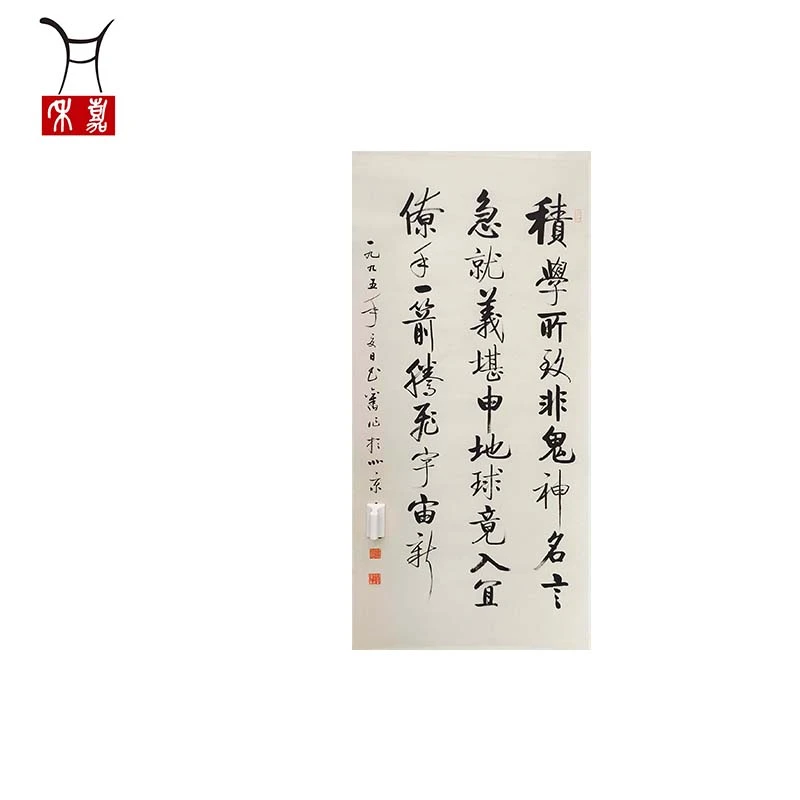 嘉
積學所致非鬼神名言
急就義堪申地球竟入宜
僚手一箭騰飛宇宙新
一九九五年夏日书舊作於北京